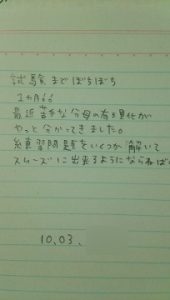 試験までぼちぼち
1ヵ月
最近苦手な分母の有理化が
やっと分かってきました。
練習問題をいくつか解いて
スムーズに出来るようになられば
10.03.